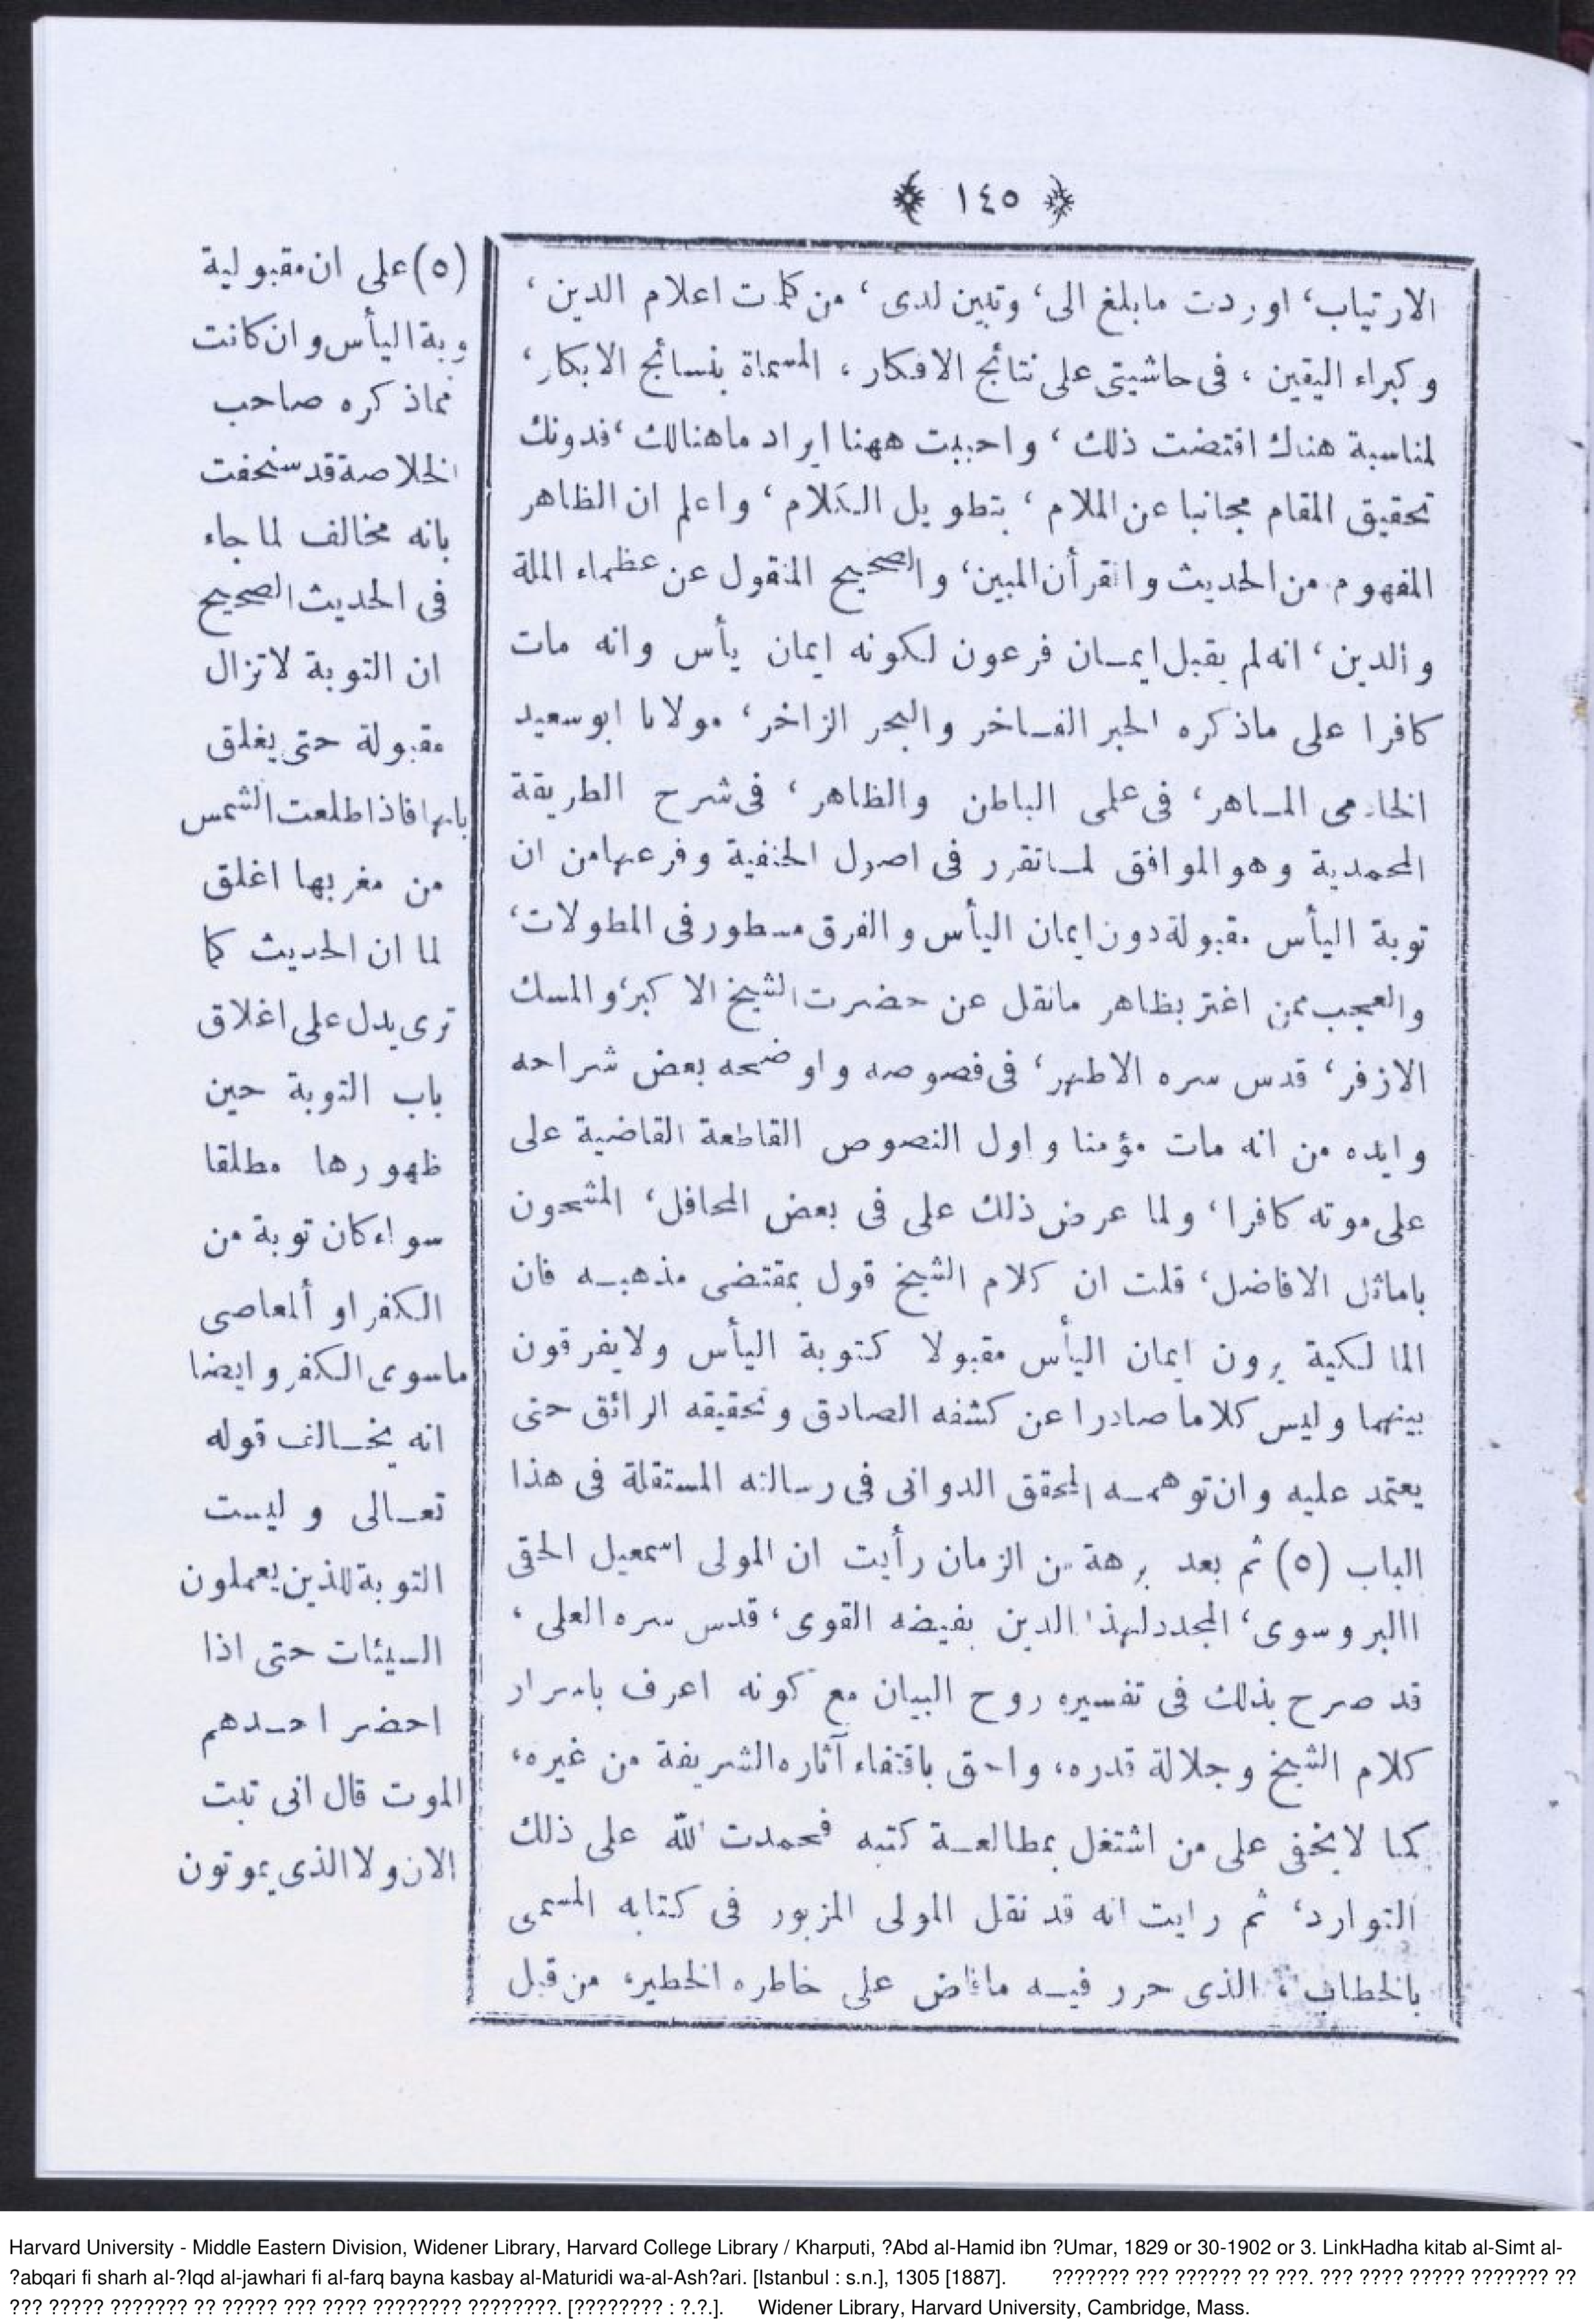 ﴿ ١٤٥ ﴾
الارتياب، اوردت مابلغ الى، وتبين لدى، من كلمات اعلام الدين،
وكبراء اليقين، فى حاشيتى على نتائج الافكار، المسماة بنسائج الابكار،
لمناسبة هناك اقتضت ذلك، واحببت ههنا ايراد ماهنالك، فدونك
تحقيق المقام مجانبا عن الملام، بتطويل الكلام، واعلم ان الظاهر
المفهوم من الحديث والقرأن المبين، والصحيح المنقول عن عظماء الملة
والدين، انه لم يقبل ايمان فرعون لكونه ايمان يأس وانه مات
كافرا على ماذكره الحبر الفاخر والبحر الزاخر، مولانا ابوسعيد
الخادمى الماهر، فى علمى الباطن والظاهر، فى شرح الطريقة
المحمدية وهو الموافق لماتقرر فى اصول الحنفية وفرعها من ان
توبة اليأس مقبولة دون ايمان اليأس والفرق مسطور فى المطولات،
والعجب ممن اغتر بظاهر مانقل عن حضرت الشيخ الاكبر، والمسك
الازفر، قدس سره الاطهر، فى فصوصه واوضحه بعض شراحه
وايده من انه مات مؤمنا واول النصوص القاطعة القاضية على
على موته كافرا، ولما عرض ذلك على فى بعض المحافل، المشحون
باماثل الافاضل، قلت ان كلام الشيخ قول بمقتضى مذهبه فان
المالكية يرون ايمان اليأس مقبولا كتوبة اليأس ولايفرقون
بينهما وليس كلاما صادرا عن كشفه الصادق وتحقيقه الرائق حتى
يعتمد عليه وان توهمه المحقق الدوانى فى رسالته المستقلة فى هذا
الباب (٥) ثم بعد برهة من الزمان رأيت ان المولى اسمعيل الحقى
االبروسوى، المجدد لهذا الدين بفيضه القوى، قدس سره العلى،
قد صرح بذلك فى تفسيره روح البيان مع كونه اعرف باسرار
كلام الشيخ وجلالة قدره، واحق باقتفاء آثاره الشريفة من غيره،
كما لايخفى على من اشتغل بمطالعة كتبه فحمدت الله على ذلك
التوارد، ثم رايت انه قد نقل المولى المزبور فى كتابه المسمى
بالخطاب، الذى حرر فيه مافاض على خاطره الخطير، من قبل
(٥) على ان مقبولية
وبة اليأس وان كانت
مماذكره صاحب
الخلاصة قد سنحفت
بانه مخالف لما جاء
فى الحديث الصحيح
ان التوبة لاتزال
مقبولة حتى يغلق
بابها فاذا طلعت الشمس
من مغربها اغلق
لما ان الحديث كما
ترى يدل على اغلاق
باب التوبة حين
ظهورها مطلقا
سواء كان توبة من
الكفر او ألمعاصى
ماسوى الكفر وايضا
انه يخالف قوله
تعالى وليست
التوبة للذين يعملون
السيئات حتى اذا
احضر احدهم
الموت قال انى تبت
الان ولا الذى يموتون
Harvard University - Middle Eastern Division, Widener Library, Harvard College Library / Kharputi, ?Abd al-Hamid ibn ?Umar, 1829 or 30-1902 or 3. LinkHadha kitab al-Simt al-
?abqari fi sharh al-?Iqd al-jawhari fi al-farq bayna kasbay al-Maturidi wa-al-Ash?ari. [Istanbul : s.n.], 1305 [1887]. ??????? ??? ?????? ?? ???. ??? ???? ????? ??????? ??
??? ????? ??????? ?? ????? ??? ???? ???????? ????????. [???????? : ?.?.]. Widener Library, Harvard University, Cambridge, Mass.